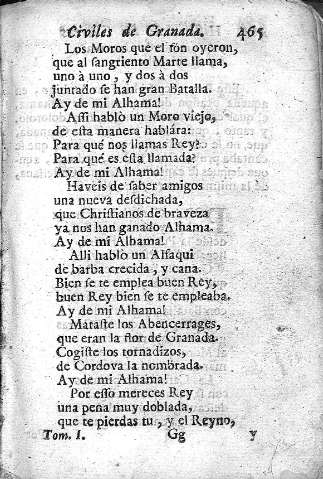 Civiles de Granada. 465
Los Moros que el ſon oyeron,
que al ſangriento Marte llama,
uno à uno, y dos à dos
juntado ſe han gran Batalla.
Ay de mi Alhama!
Aſſi hablò un Moro viejo,
de eſta manera hablára:
Para què nos llamas Rey?
Para què es eſta llamada?
Ay de mi Alhama!
Haveis de ſaber amigos
una nueva deſdichada,
que Chriſtianos de braveza
ya nos han ganado Alhama.
Ay de mi Alhama!
Alli hablò un Alfaqui
de barba crecida, y cana.
Bien ſe te emplea buen Rey,
buen Rey bien ſe te empleaba.
Ay de mi Alhama!
Mataſte los Abencerrages,
que eran la flor de Granada.
Cogiſte los tornadizos,
de Cordova la nombrada.
Ay de mi Alhama!
Por eſſo mereces Rey
una pena muy doblada,
que te pierdas tu, y el Reyno,
Tom. I. Gg y